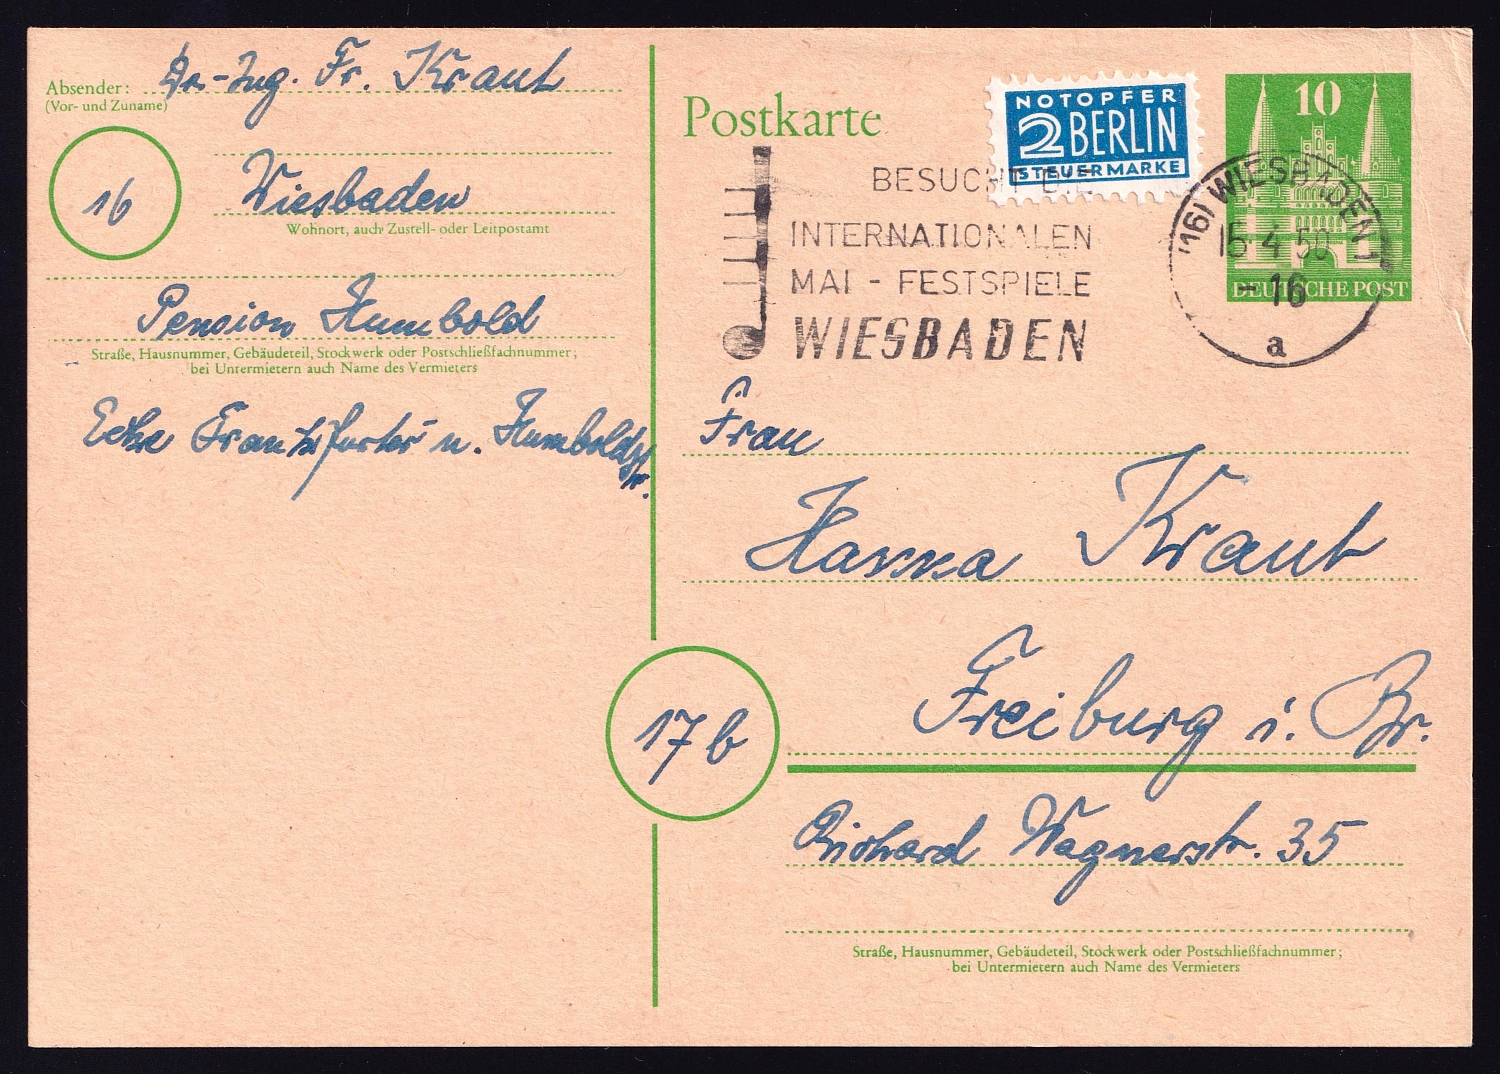 Absender: Dr.-Ing. Fr. Kraut
(Vor- und Zuname)
16
Wiesbaden
Wohnort, auch Zustell- oder Leitpostamt
Pension Humbold
Straße, Hausnummer, Gebäudeteil, Stockwerk oder Postschließfachnummer;
bei Untermietern auch Name des Vermieters
Ecke Frankfurter u. Humboldstr.
Postkarte
NOTOPFER
2 BERLIN
STEUERMARKE
10
DEUTSCHE POST
BESUCHT DIE
INTERNATIONALEN
MAI - FESTSPIELE
WIESBADEN
(16) WIESBADEN 1
15.4.50-16
a
Frau
Hanna Kraut
17b
Freiburg i. Br.
Richard Wagnerstr. 35
Straße, Hausnummer, Gebäudeteil, Stockwerk oder Postschließfachnummer;
bei Untermietern auch Name des Vermieters